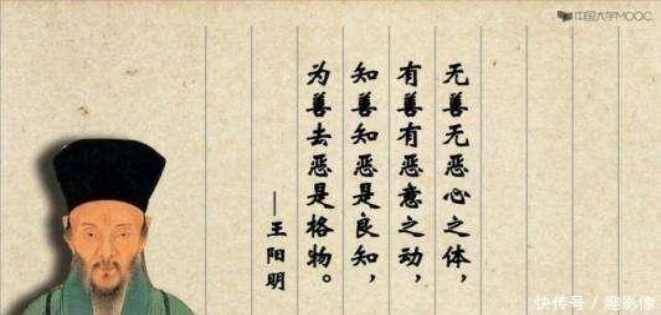 中国大学MOOC
无善无恶心之体，
有善有恶意之动，
知善知恶是良知，
为善去恶是格物。
—王阳明
快传号/趣影像